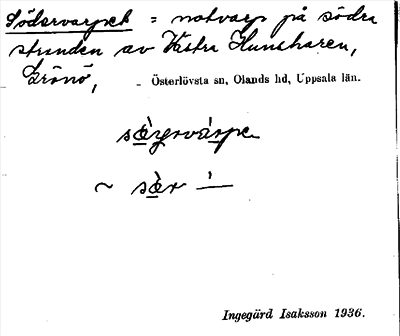 Södervarpet = notvarp på södra
stranden av Västra Hunsharen,
Gränö, - Österlövsta sn, Olands hd, Uppsala län.
~
Ingegärd Isaksson 1936.